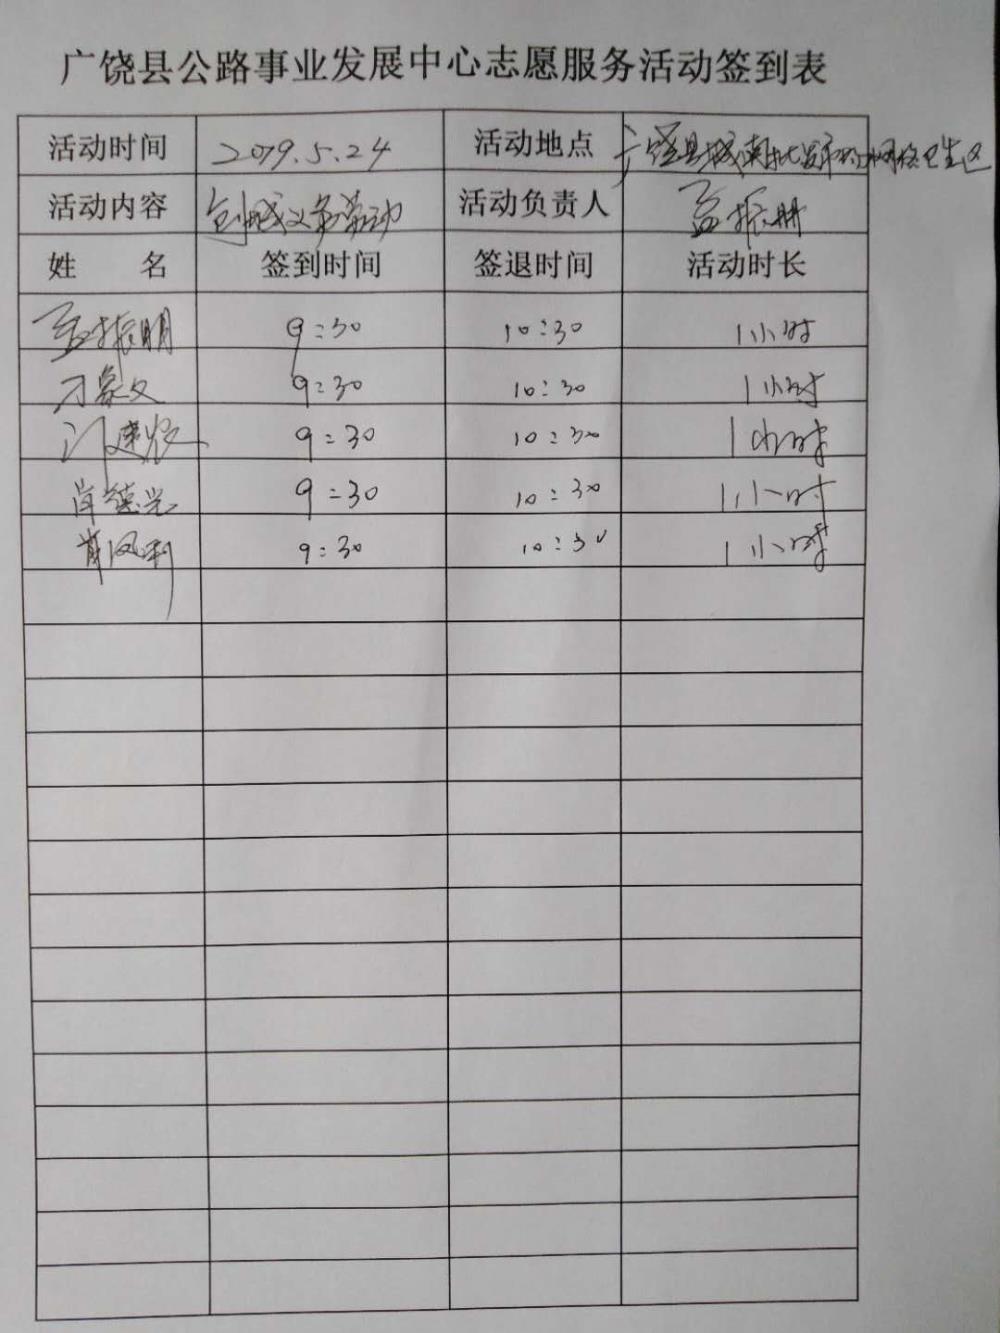 广饶县公路事业发展中心志愿服务活动签到表
活动时间 2019.5.24 活动地点 广饶县城南批发市场 卫生区
活动内容 创城义务劳动 活动负责人 孟振明
姓 名 签到时间 签退时间 活动时长
孟振明 9:30 10:30 1小时
刁象文 9:30 10:30 1小时
9:30 10:30 1小时
德兴 9:30 10:30 1小时
肖凤利 9:30 10:30 1小时